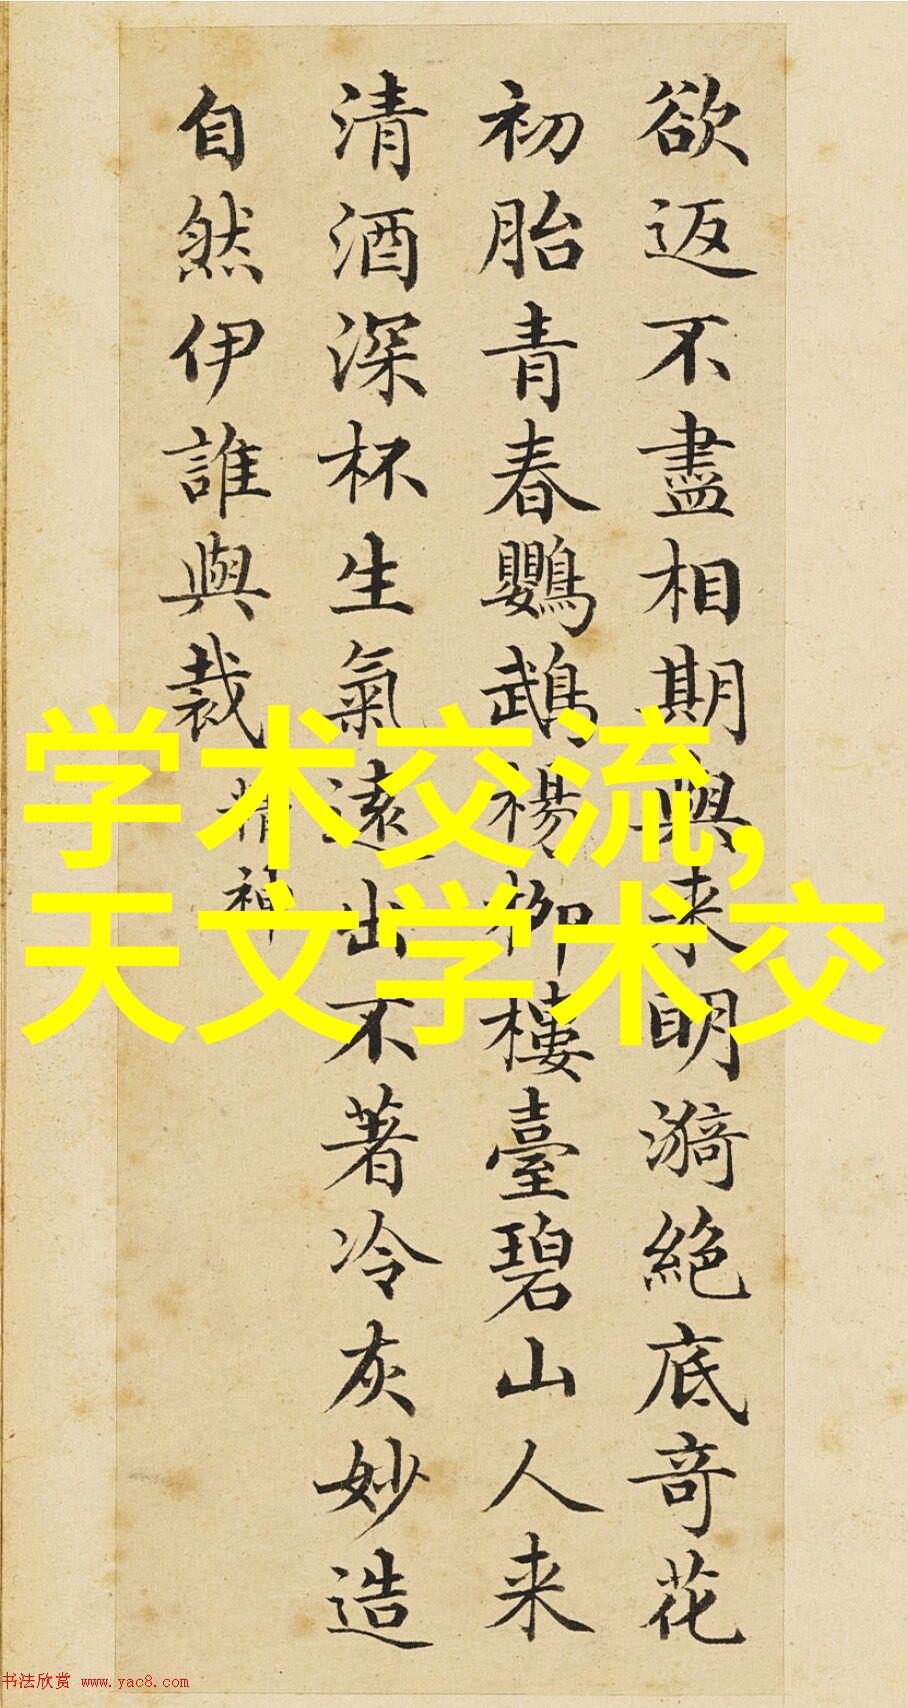 欲返不盡相期與来明漪絶底奇花
初胎青春鸚鵡楊柳樓臺碧山人来
清酒深杯生氣遠出不著冷灰妙造
自然伊誰與裁
精神
学术交流,
天文学术交
书法欣赏 www.yac8.com